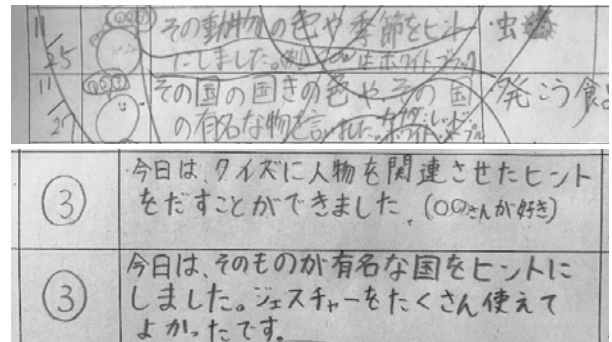 11/25
その動物の色や季節をヒン
トにしました。
はホワイトブラック
・虫
11/27
その国の国きの色やその国
の有名な物を言いました。
発こう食品
③
今日は、クイズに人物を関連させたヒント
をだすことができました。(〇〇さんが好き)
③
今日は、そのものが有名な国をヒントに
しました。ジェスチャーをたくさん使えて
よかったです。